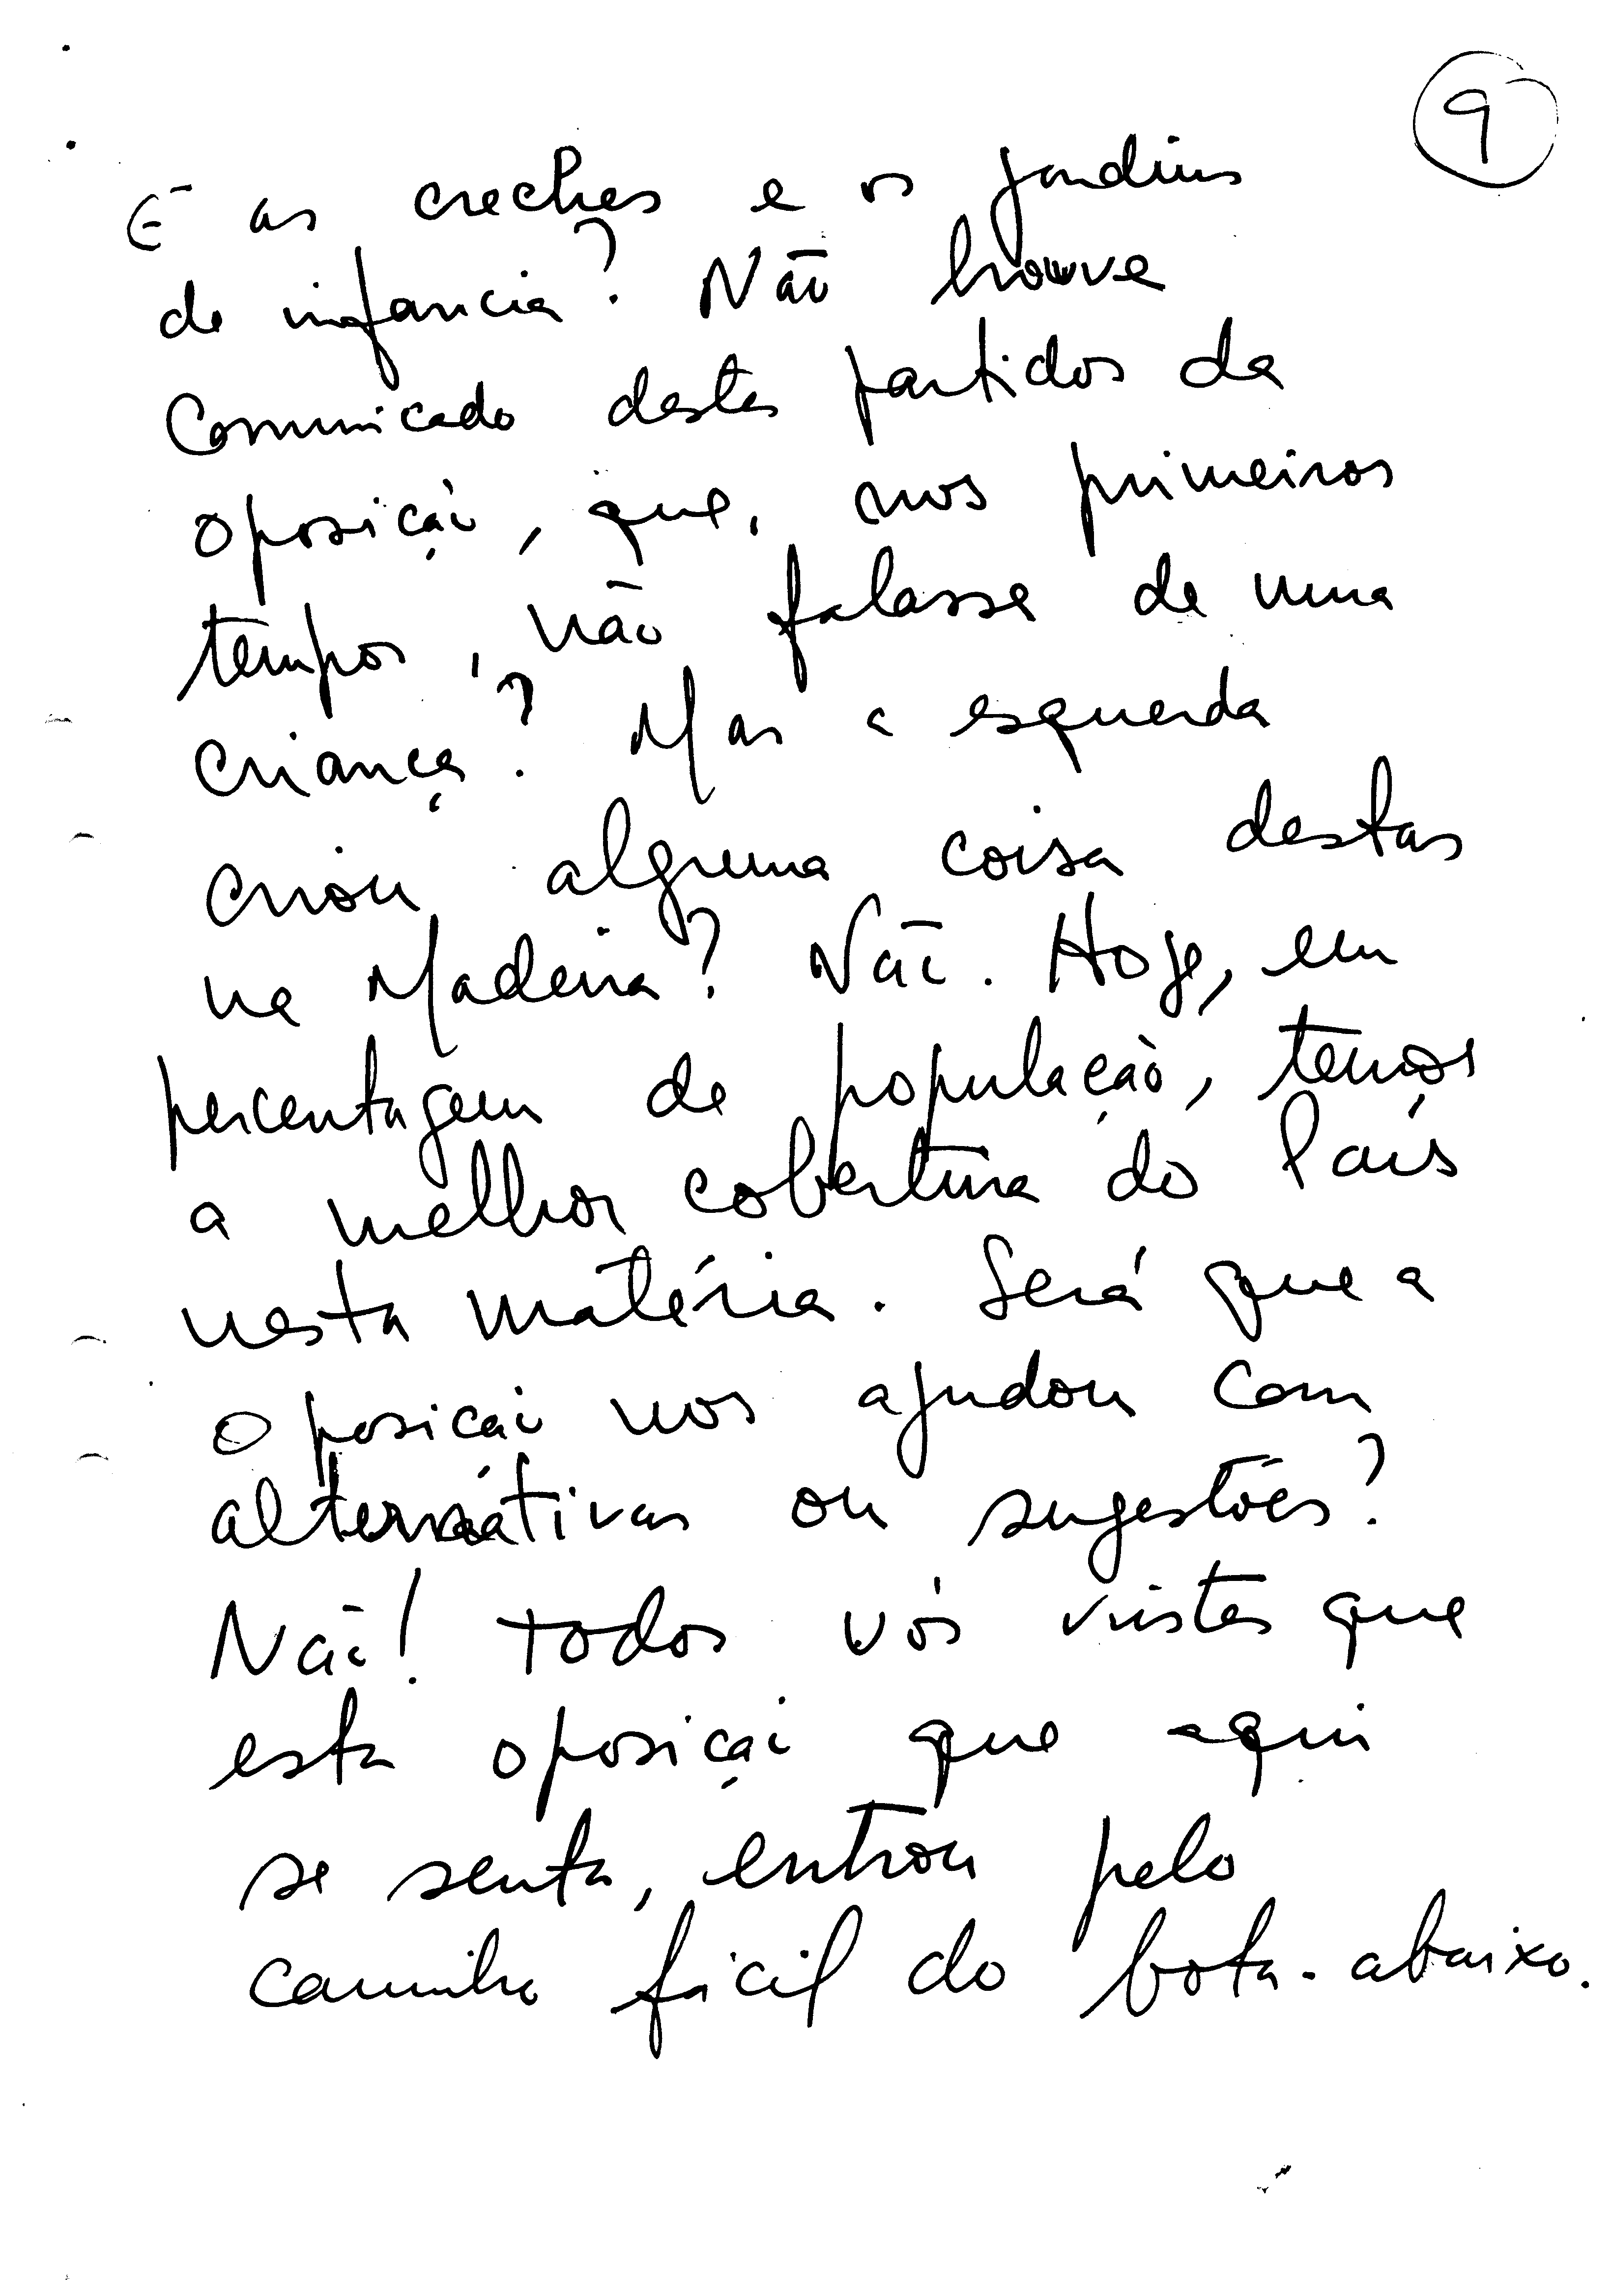 9
E as creches e os jardins
de infancia? Não houve
Comunicado destes partidos da
oposição, que, nos primeiros
tempos, não falasse de uma
criança? Mas a esquerda
criou alguma coisa destas
na Madeira? Não. Hoje, em
percentagem de população, temos
a melhor cobertura do País
nesta matéria. Será que a
oposicão nos ajudou com
alternátivas ou sugestões?
Não! todos vós vistes que
esta oposição que aqui
se senta, entrou pelo
caminho fácil do bota-abaixo.